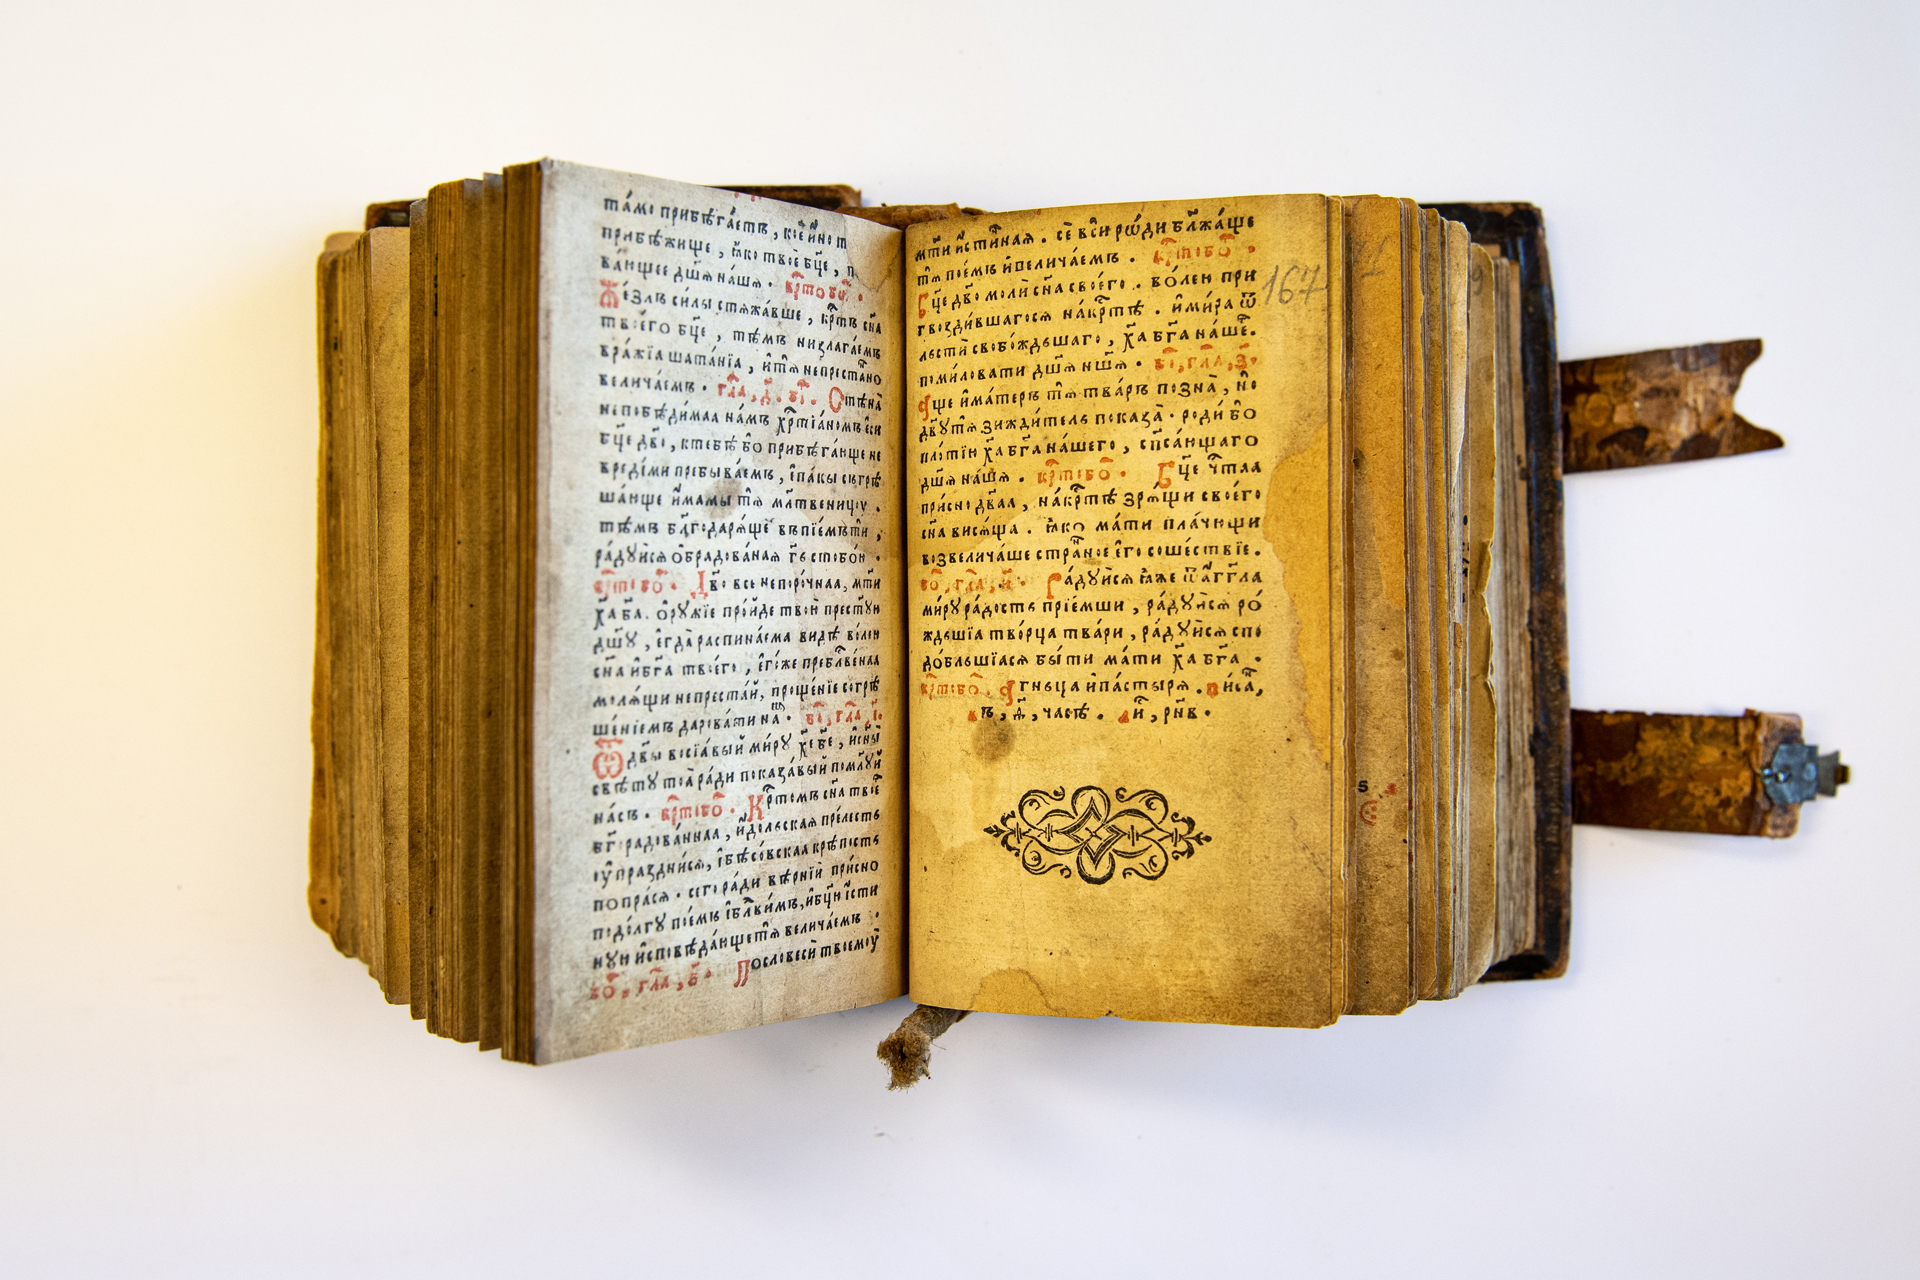 та́мо прибѣга́етъ, кое и́но т
прибѣ́жище, ꙗ҆́ко твоѐ бц҃е, п
ва́ющее дш҃ѧ на́шѧ. крⷭ҇тобо̑.
Же́злъ си́лы стѧжа́вше, крⷭ҇тъ сн҃а
твоего̀ бц҃е, тѣ́мъ низлага́емъ
вра́жїѧ шата́нїѧ, и҆ тѧ̀ непреста́но
велича́емъ. гла̑, д҃. бо̑. Стѣна̀
непобѣди́маѧ на́мъ хрⷭ҇тїа́номъ є҆сѝ
бц҃е дв҃о, к тебѣ́ бо прибѣга́юще не
вреди́ми пребыва́емъ, и҆ па́ки согрѣ
ша́юще и҆́мамы тѧ̀ мл҃твеницꙋ.
тѣ́мъ благодарѧ́ще въпїе́мъ ти,
ра́дꙋйсѧ ѡ҆брадова́наѧ гь҃ с тобо́ю.
крⷭ҇тобо̑. Дв҃о всенепоро́чнаѧ, мт҃и
хⷭ҇а бг҃а. ѻ҆рꙋ́жїе про́йде твою̀ прест҃ꙋю
дш҃ꙋ, є҆гда̀ распина́ема ви́дѣ во́лею
сн҃а и҆ бг҃а твоего̀, є҆го́же пребл҃ве́наѧ
молѧ́щи непреста́й, проще́нїе согрѣ
ше́нїемъ дарова́ти на́мъ. бо̑, гла̑, є҃.
Ѿ дв҃ы восїѧ́вый мі́рꙋ хⷭ҇е бж҃е, и҆ сн҃ы
свѣ́тꙋ тоѧ̀ ра́ди показа́вый поми́лꙋй
на́съ. крⷭ҇тобо̑. Крⷭ҇томъ сн҃а твоегѡ̀
бг҃ора́дованнаѧ, и҆́дольскаѧ пре́лесть
оу҆праздни́сѧ, и҆ бѣсо́вскаѧ крѣ́пость
попра́сѧ. сего̀ ра́ди вѣ́рнїи при́сно
по до́лгꙋ пое́мъ и҆ бл҃ви́мъ, и҆ бц҃ꙋ и҆́сти
нꙋю и҆сповѣ́дающе тѧ̀ велича́емъ.
бо̑, гла̑, ѕ҃. По словесѝ твоемꙋ̀
мт҃и и҆́стиннаѧ. се́ вси ро́ди бл҃жа́ще
тѧ̀ пое́мъ и҆ велича́емъ. крⷭ҇тобо̑.
Бц҃е дв҃о молѝ сн҃а своего̀. во́лею при
гвозди́вшагосѧ на крⷭ҇тѣ̀. и҆ мі́ра ѿ
льстѝ свобо́ждьшаго, хⷭ҇а бг҃а на́шего.
поми́ловати дш҃ѧ нш҃ѧ. бо̑, гла̑, з҃.
Аще и҆ ма́терь тѧ̀ тва́рь позна̀, но
дв҃ꙋ тѧ̀ зижди́тель показа̀. роди́ бо
пло́тїю хⷭ҇а бг҃а на́шего, сп҃са́ющаго
дш҃ѧ на́шѧ. крⷭ҇тобо̑. Бц҃е чⷭ҇таѧ
присно дв҃аѧ, на крⷭ҇тѣ̀ зрѧ́щи своего̀
сн҃а висѧ́ща. ꙗ҆́ко ма́ти пла́чющи
возвелича́ше стра́нное є҆го̀ соше́ствїе.
бо̑, гла̑, и҃. Ра́дꙋйсѧ ꙗ҆́же ѿ а҆́гг҃ла
мі́рꙋ ра́дость прїе́мши, ра́дꙋйсѧ ро́
ждьшїа тво́рца тва́ри, ра́дꙋйсѧ спо
до́бльшїасѧ бы́ти ма́ти хⷭ҇а бг҃а.
крⷭ҇тобо̑. Агньца и҆ па́стырѧ. писа̑,
въ, д҃, ча́сѣ. ли́, рн҃в.
167